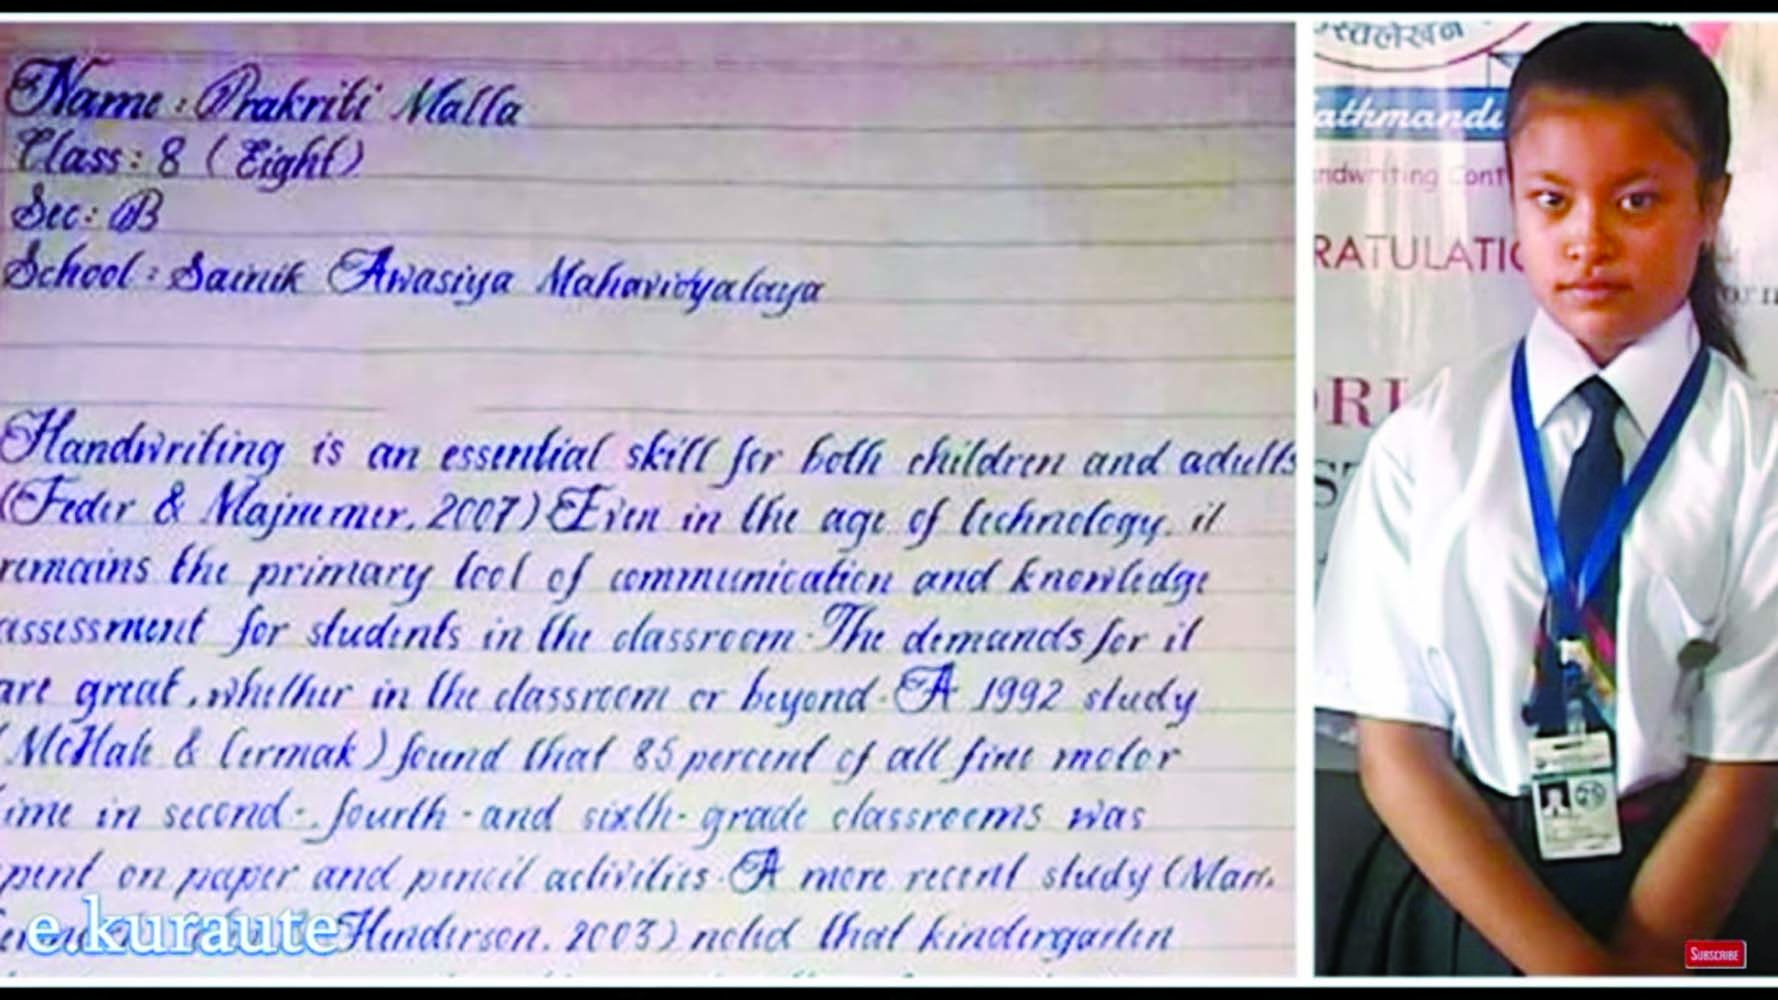 Name : Prakriti Malla
Class : 8 ( Eight )
Sec : B
School : Sainik Awasiya Mahavidyalaya
Handwriting is an essential skill for both children and adults
(Feder & Majnemer, 2007) Even in the age of technology, it
remains the primary tool of communication and knowledge
assessment for students in the classroom. The demands for it
are great, whether in the classroom or beyond. A 1992 study
(McHale & Cermak) found that 85 percent of all fine motor
ime in second-, fourth-and sixth-grade classrooms was
pent on paper and pencil activities. A more recent study (Marr,
Henderson, 2003) noted that kindergarten
e.kuraute
स्तलेखन
athmandu
ndwriting Cont
RATULATIO
orn
ORL
ST
25
SUBSCRIBE